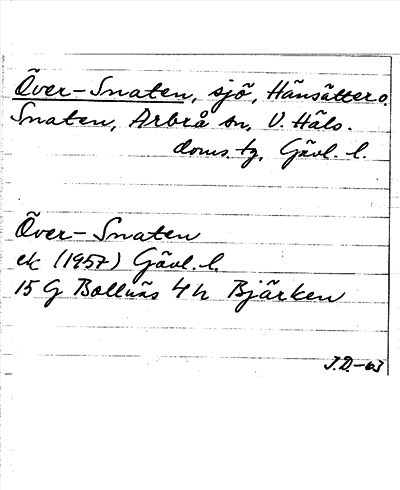 Över-Snaten, sjö, Hänsätter o.
Snaten, Arbrå sn, V. Häls.
doms. tg, Gävl. l.
Över-Snaten
ek (1957) Gävl. l.
15 G Bollnäs 4 h Bjärken
J.D.-63